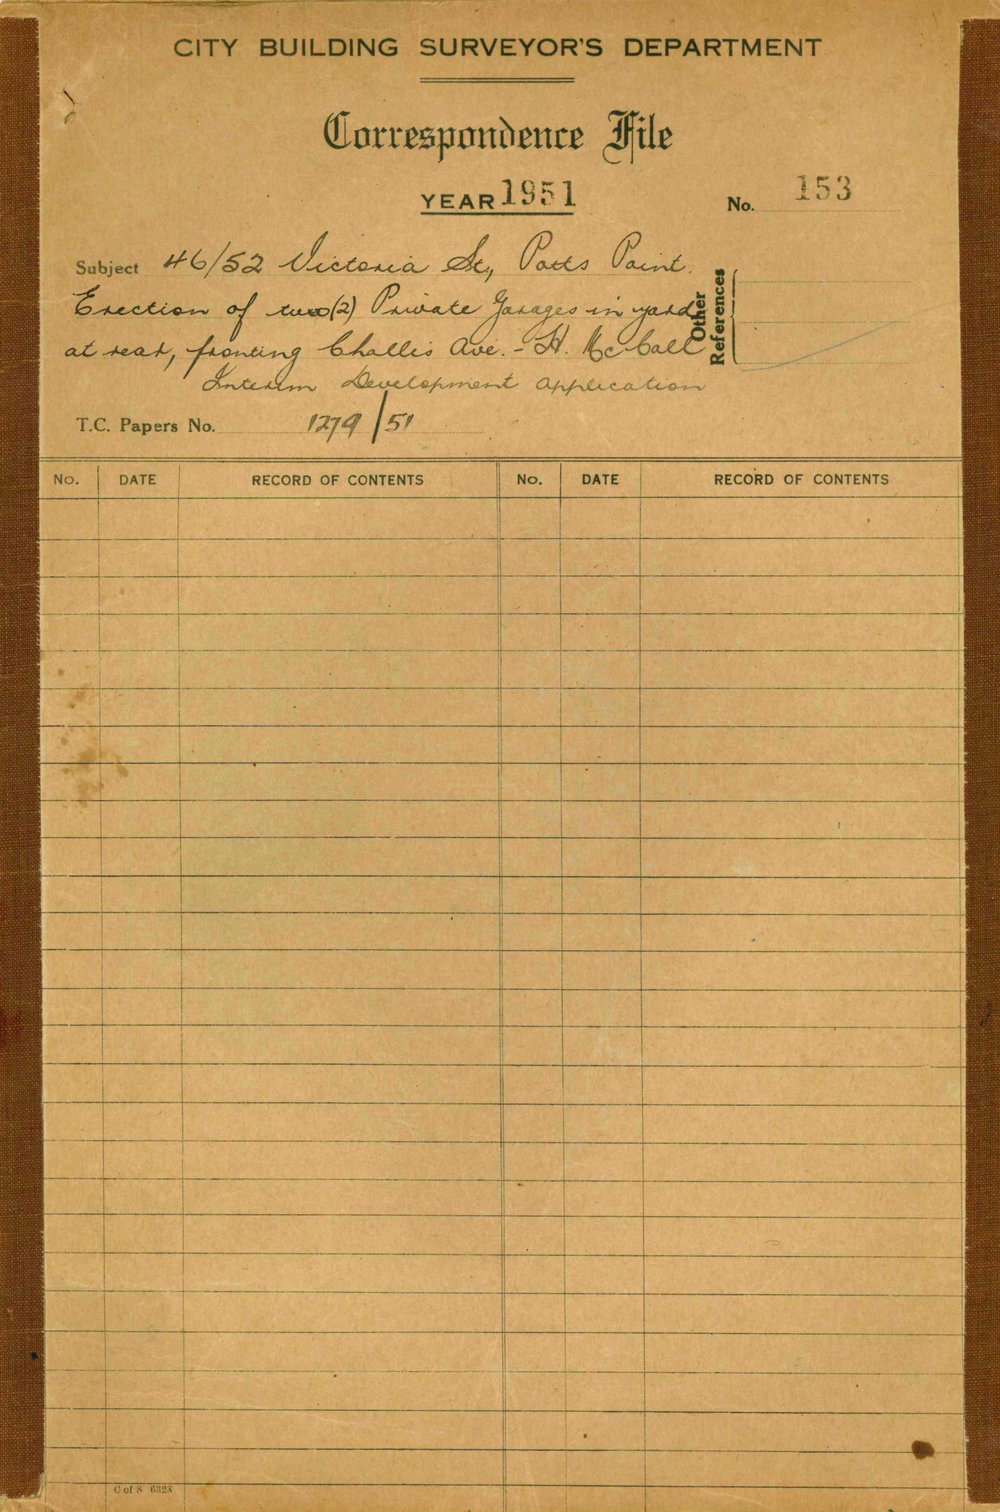 CITY BUILDING SURVEYOR'S DEPARTMENT
Correspondence File
YEAR 1951
No. 153
Subject 46/52 Victoria St, Potts Point.
Erection of two (2) Private Garages in yard
at rear, fronting Challis Ave. - H. McCall
Interim Development Application
Other References
T.C. Papers No. 1279/51
No. DATE RECORD OF CONTENTS No. DATE RECORD OF CONTENTS
C of S 6323